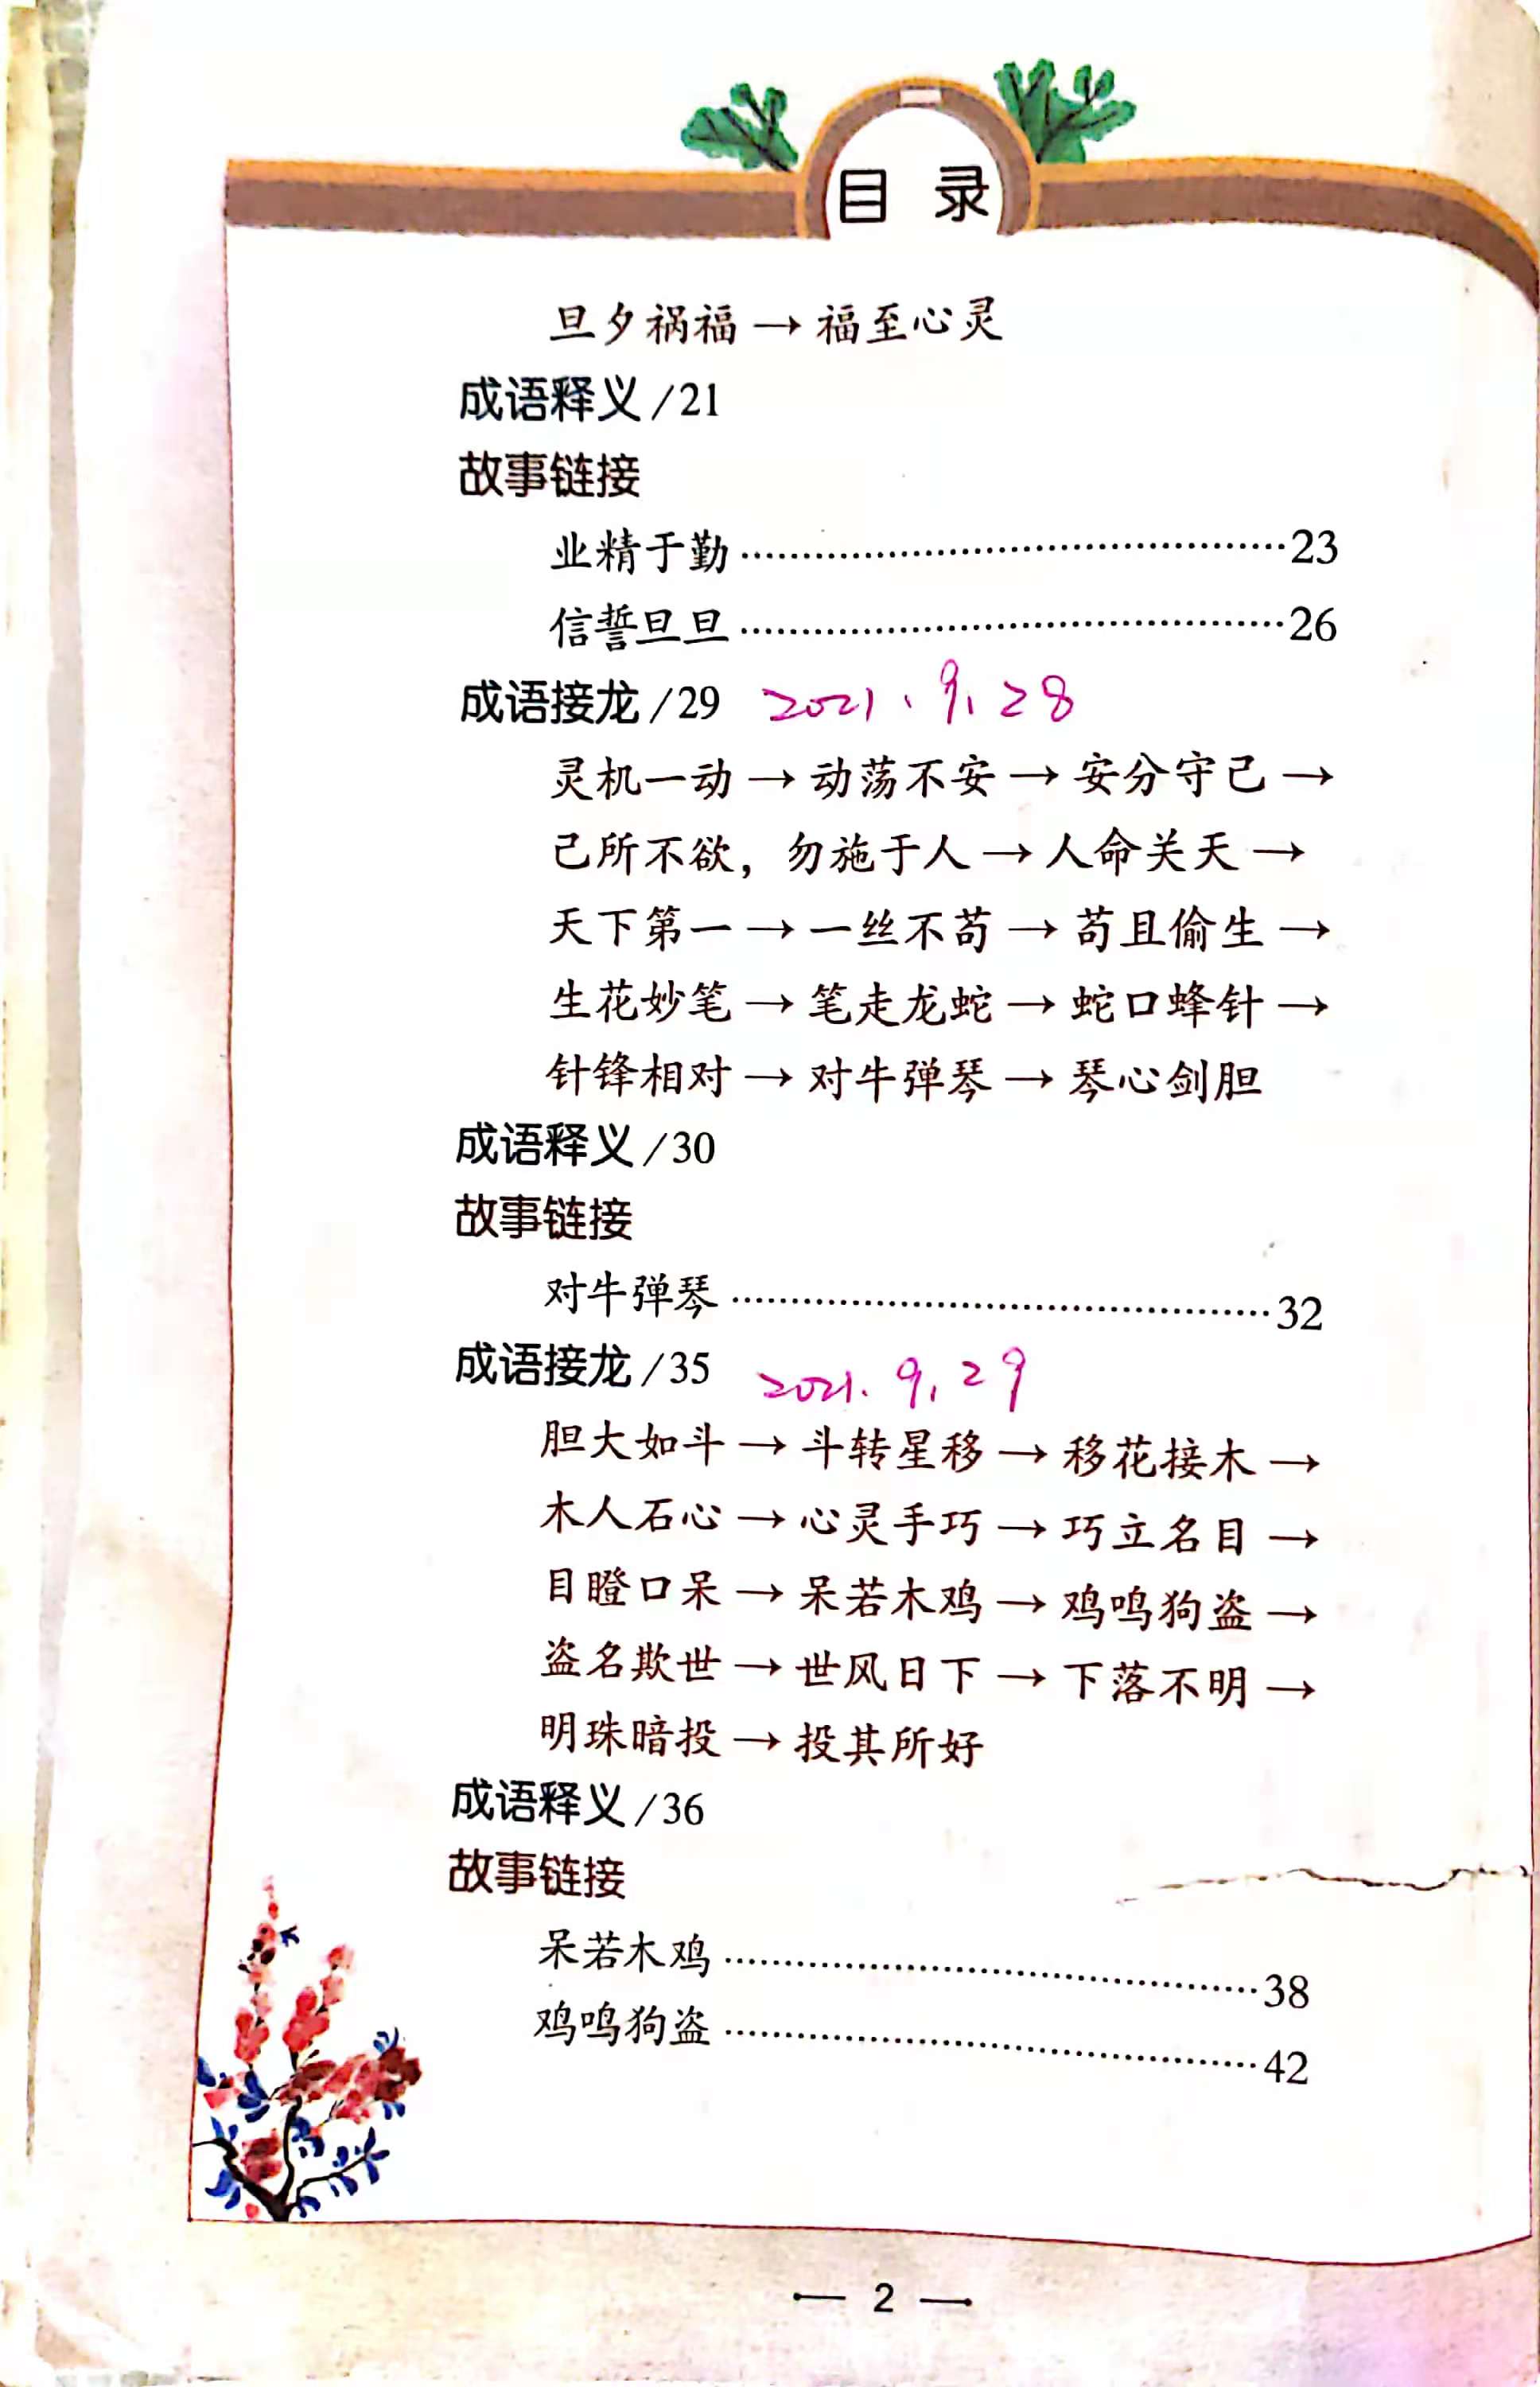 目 录
旦夕祸福→福至心灵
成语释义/21
故事链接
业精于勤…………………………………23
信誓旦旦…………………………………26
成语接龙/29 2021.9.28
灵机一动→动荡不安→安分守己→
己所不欲，勿施于人→人命关天→
天下第一→一丝不苟→苟且偷生→
生花妙笔→笔走龙蛇→蛇口蜂针→
针锋相对→对牛弹琴→琴心剑胆
成语释义/30
故事链接
对牛弹琴…………………………………32
成语接龙/35 2021.9.29
胆大如斗→斗转星移→移花接木→
木人石心→心灵手巧→巧立名目→
目瞪口呆→呆若木鸡→鸡鸣狗盗→
盗名欺世→世风日下→下落不明→
明珠暗投→投其所好
成语释义/36
故事链接
呆若木鸡…………………………………38
鸡鸣狗盗…………………………………42
— 2 —